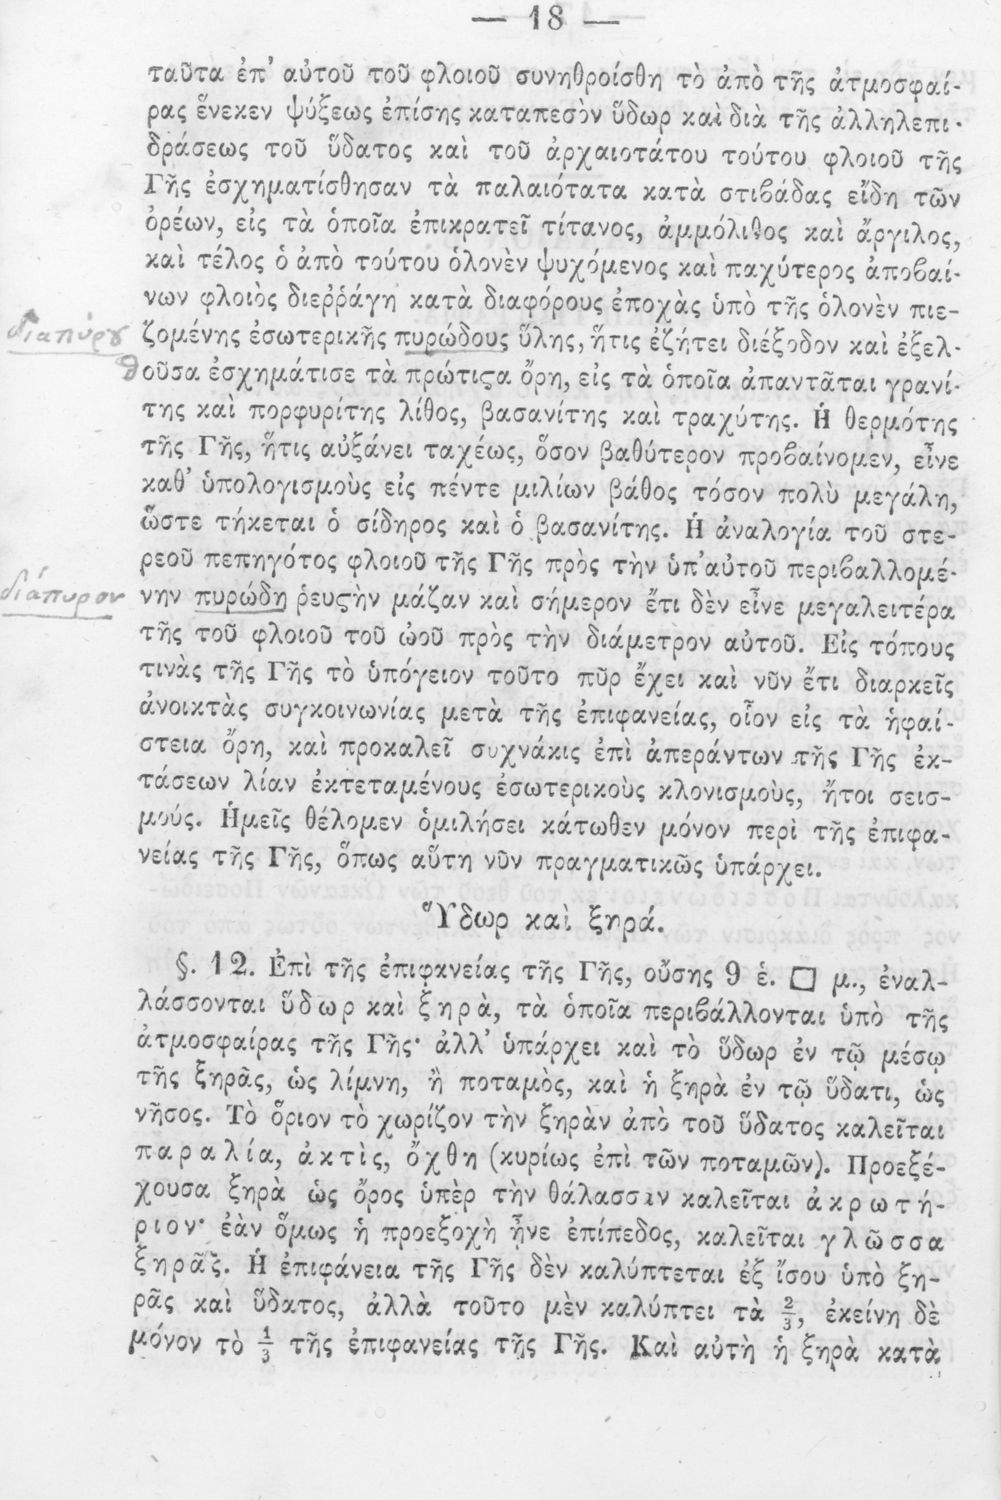 — 18 —
ταῦτα ἐπ’ αὐτοῦ τοῦ φλοιοῦ συνηθροίσθη τὸ ἀπὸ τῆς ἀτμοσφαί-
ρας ἕνεκεν ψύξεως ἐπίσης καταπεσὸν ὕδωρ καὶ διὰ τῆς ἀλληλεπι-
δράσεως τοῦ ὕδατος καὶ τοῦ ἀρχαιοτάτου τούτου φλοιοῦ τῆς
Γῆς ἐσχηματίσθησαν τὰ παλαιότατα κατὰ στιβάδας εἴδη τῶν
ὀρέων, εἰς τὰ ὁποῖα ἐπικρατεῖ τίτανος, ἀμμόλιθος καὶ ἄργιλος,
καὶ τέλος ὁ ἀπὸ τούτου ὁλονὲν ψυχόμενος καὶ παχύτερος ἀποβαί-
νων φλοιὸς διεῤῥάγη κατὰ διαφόρους ἐποχὰς ὑπὸ τῆς ὁλονὲν πιε-
διαπύρου
ζομένης ἐσωτερικῆς πυρώδους ὕλης, ἥτις ἐζήτει διέξοδον καὶ ἐξελ-
θοῦσα ἐσχημάτισε τὰ πρώτιϛα ὄρη, εἰς τὰ ὁποῖα ἀπαντᾶται γρανί-
της καὶ πορφυρίτης λίθος, βασανίτης καὶ τραχύτης. Ἡ θερμότης
τῆς Γῆς, ἥτις αὐξάνει ταχέως, ὅσον βαθύτερον προβαίνομεν, εἶνε
καθ’ ὑπολογισμοὺς εἰς πέντε μιλίων βάθος τόσον πολὺ μεγάλη,
ὥστε τήκεται ὁ σίδηρος καὶ ὁ βασανίτης. Ἡ ἀναλογία τοῦ στε-
ρεοῦ πεπηγότος φλοιοῦ τῆς Γῆς πρὸς τὴν ὑπ’ αὐτοῦ περιβαλλομέ-
διάπυρον
νην πυρώδη ῥευϛὴν μάζαν καὶ σήμερον ἔτι δὲν εἶνε μεγαλειτέρα
τῆς τοῦ φλοιοῦ τοῦ ὠοῦ πρὸς τὴν διάμετρον αὐτοῦ. Εἰς τόπους
τινὰς τῆς Γῆς τὸ ὑπόγειον τοῦτο πῦρ ἔχει καὶ νῦν ἔτι διαρκεῖς
ἀνοικτὰς συγκοινωνίας μετὰ τῆς ἐπιφανείας, οἷον εἰς τὰ ἡφαί-
στεια ὄρη, καὶ προκαλεῖ συχνάκις ἐπὶ ἀπεράντων τῆς Γῆς ἐκ-
τάσεων λίαν ἐκτεταμένους ἐσωτερικοὺς κλονισμοὺς, ἤτοι σεισ-
μούς. Ἡμεῖς θέλομεν ὁμιλήσει κάτωθεν μόνον περὶ τῆς ἐπιφα-
νείας τῆς Γῆς, ὅπως αὕτη νῦν πραγματικῶς ὑπάρχει.
Ὕδωρ καὶ ξηρά.
§. 12. Ἐπὶ τῆς ἐπιφανείας τῆς Γῆς, οὔσης 9 ἑ. □ μ., ἐναλ-
λάσσονται ὕδωρ καὶ ξηρὰ, τὰ ὁποῖα περιβάλλονται ὑπὸ τῆς
ἀτμοσφαίρας τῆς Γῆς· ἀλλ’ ὑπάρχει καὶ τὸ ὕδωρ ἐν τῷ μέσῳ
τῆς ξηρᾶς, ὡς λίμνη, ἢ ποταμὸς, καὶ ἡ ξηρὰ ἐν τῷ ὕδατι, ὡς
νῆσος. Τὸ ὅριον τὸ χωρίζον τὴν ξηρὰν ἀπὸ τοῦ ὕδατος καλεῖται
παραλία, ἀκτὶς, ὄχθη (κυρίως ἐπὶ τῶν ποταμῶν). Προεξέ-
χουσα ξηρὰ ὡς ὄρος ὑπὲρ τὴν θάλασσαν καλεῖται ἀκρωτή-
ριον· ἐὰν ὅμως ἡ προεξοχὴ ἦνε ἐπίπεδος, καλεῖται γλῶσσα
ξηρᾶς. Ἡ ἐπιφάνεια τῆς Γῆς δὲν καλύπτεται ἐξ ἴσου ὑπὸ ξη-
ρᾶς καὶ ὕδατος, ἀλλὰ τοῦτο μὲν καλύπτει τὰ 2/3, ἐκείνη δὲ
μόνον τὸ 1/3 τῆς ἐπιφανείας τῆς Γῆς. Καὶ αὐτὴ ἡ ξηρὰ κατὰ